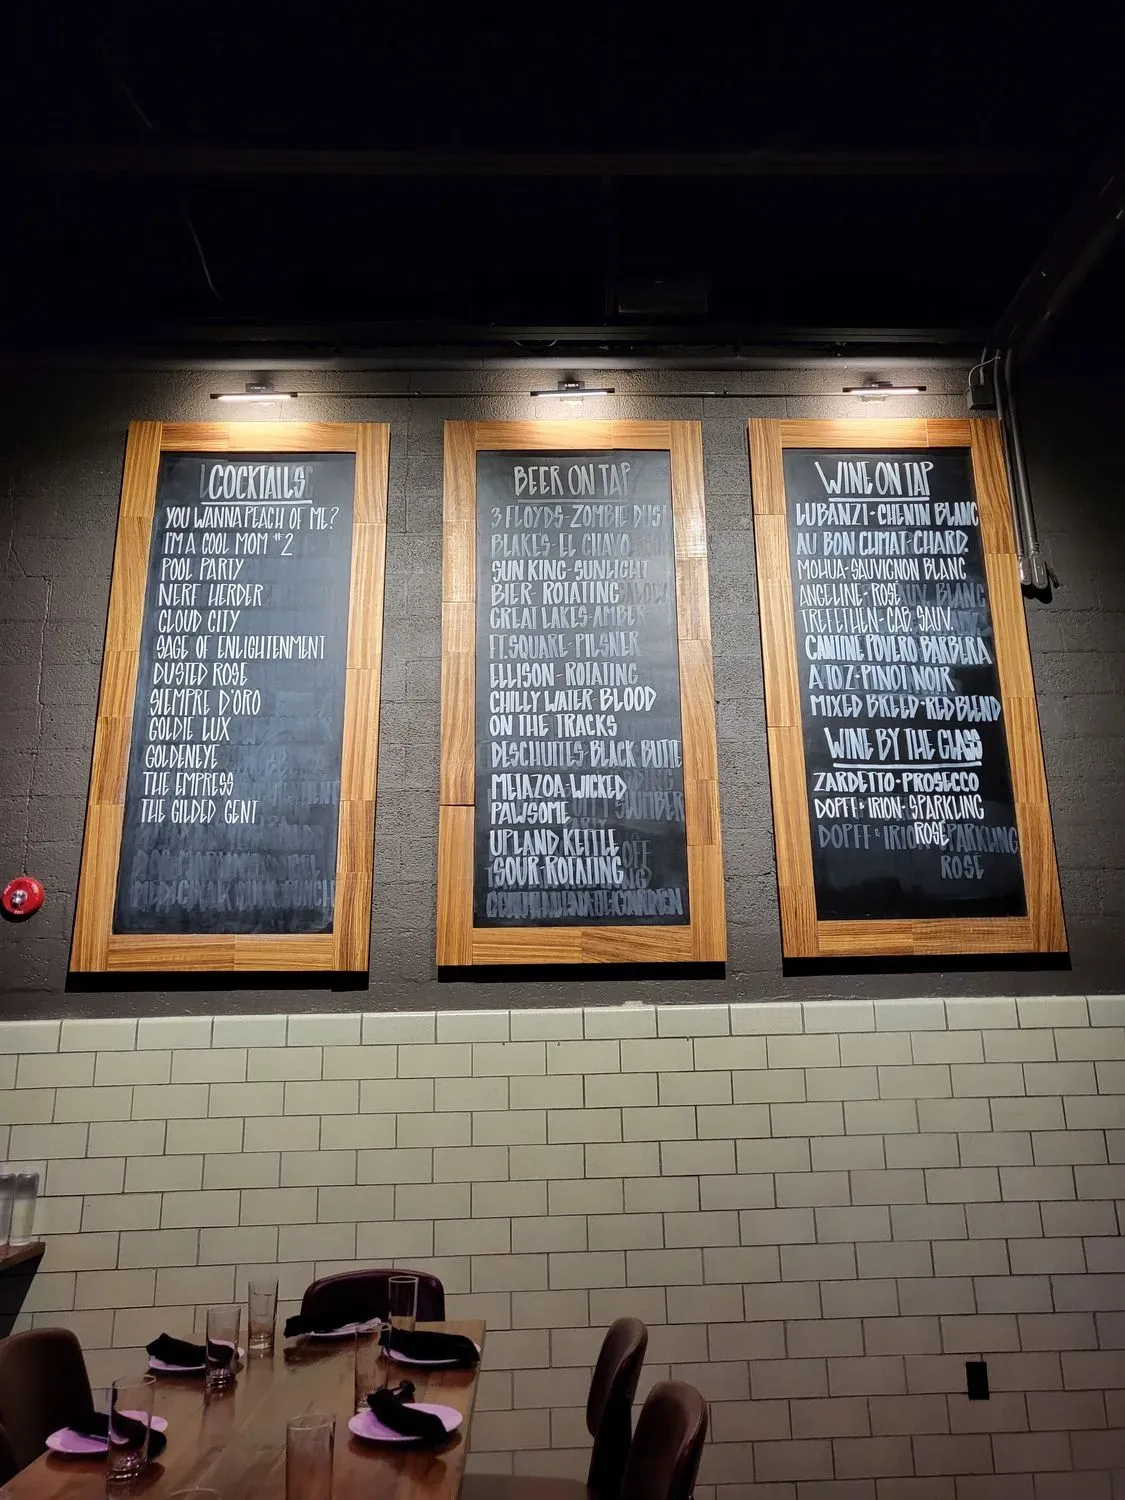 COCKTAILS
YOU WANNA PEACH OF ME?
I'M A COOL MOM #2
POOL PARTY
NERF HERDER
CLOUD CITY
SAGE OF ENLIGHTENMENT
DUSTED ROSE
SIEMPRE D'ORO
GOLDIE LUX
GOLDENEYE
THE EMPRESS
THE GILDED GENT
BEER ON TAP
3 FLOYDS-ZOMBIE DUST
BLAKES-EL CHAVO
SUN KING-SUNLIGHT
BIER-ROTATING
GREAT LAKES-AMBER
FT. SQUARE-PILSNER
ELLISON-ROTATING
CHILLY WATER-BLOOD
ON THE TRACKS
DESCHUTES BLACK BUTTE
METAZOA-WICKED
PAWSOME
UPLAND KETTLE
SOUR-ROTATING
WINE ON TAP
LUBANZI-CHENIN BLANC
AU BON CLIMAT-CHARD.
MOHUA-SAUVIGNON BLANC
ANGELINE-ROSE
TREFETHEN-CAB. SAUV.
CANTINE POVERO-BARBERA
A TO Z-PINOT NOIR
MIXED BREED-RED BLEND
WINE BY THE GLASS
ZARDETTO-PROSECCO
DOPFF & IRION-SPARKLING
ROSÉ